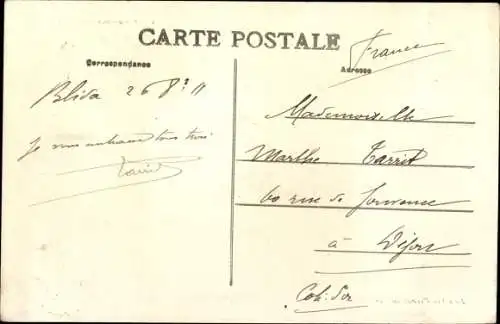 CARTE POSTALE
France
Correspondance
Adresse
Blida 26 8bre 11
Je vous embrasse tous trois
Mademoiselle
Marthe Tarrit
60 rue de Jouvence
à Dijon
Côte d'Or